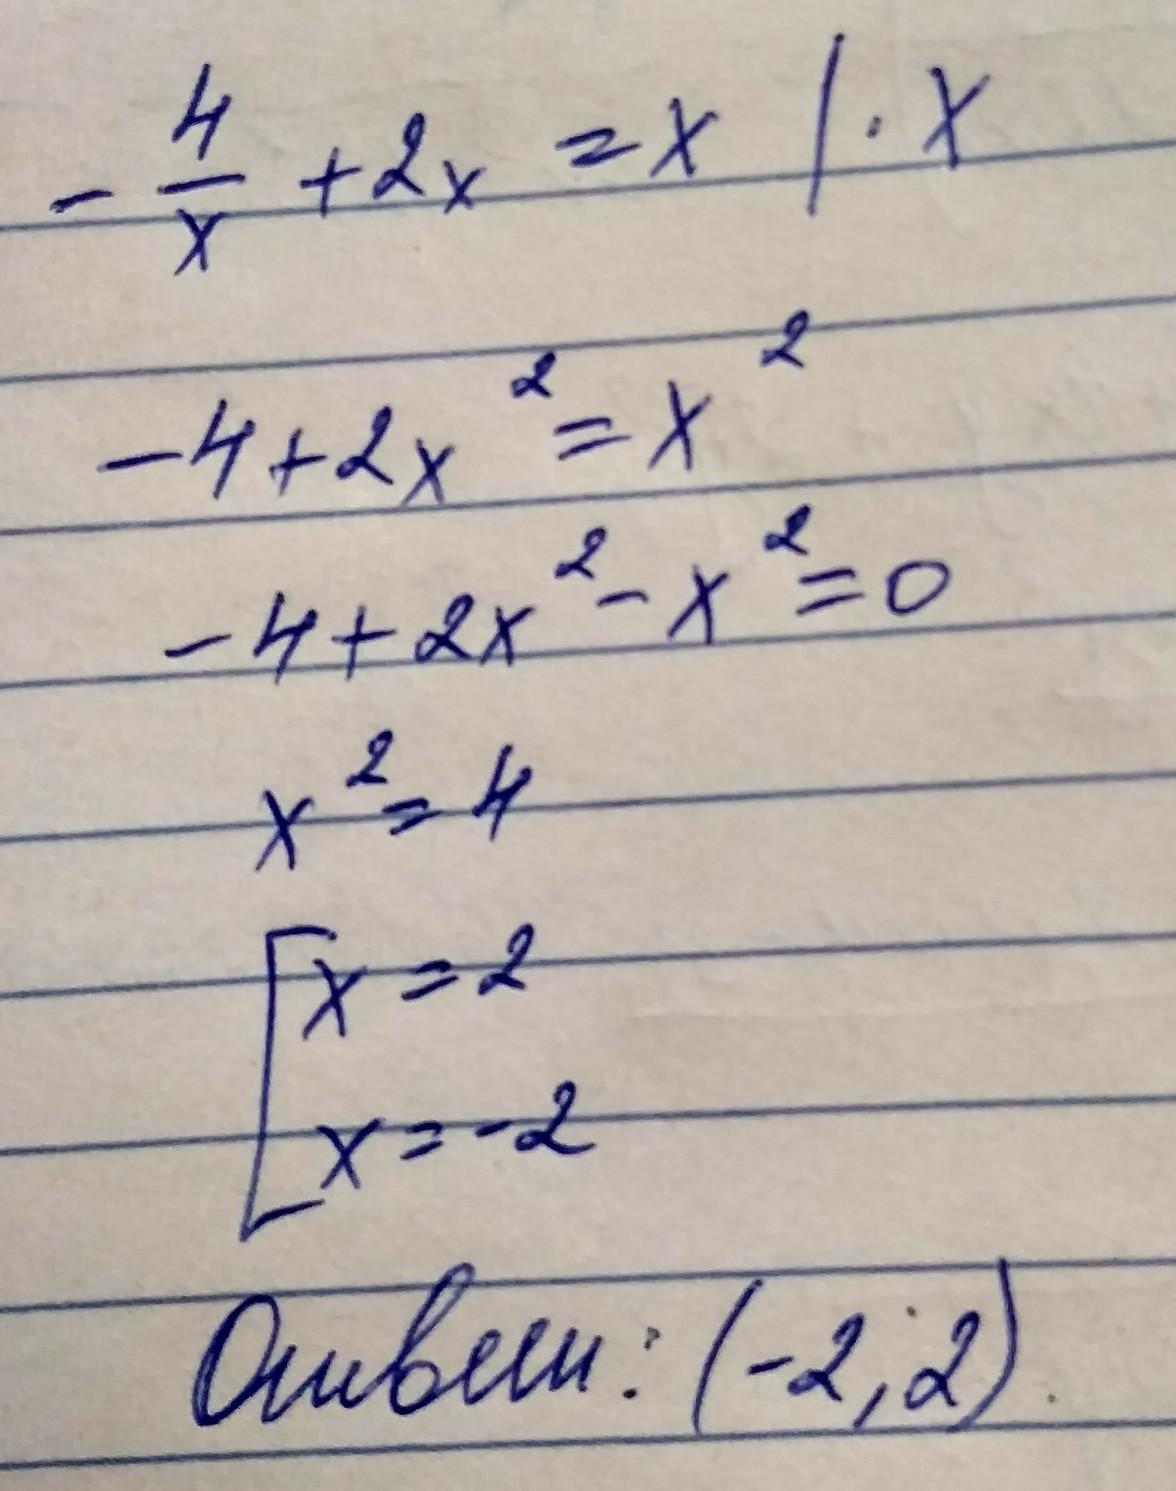 -4/x + 2x = x | · x
-4 + 2x² = x²
-4 + 2x² - x² = 0
x² = 4
[ x = 2
x = -2
Ответ: (-2; 2).